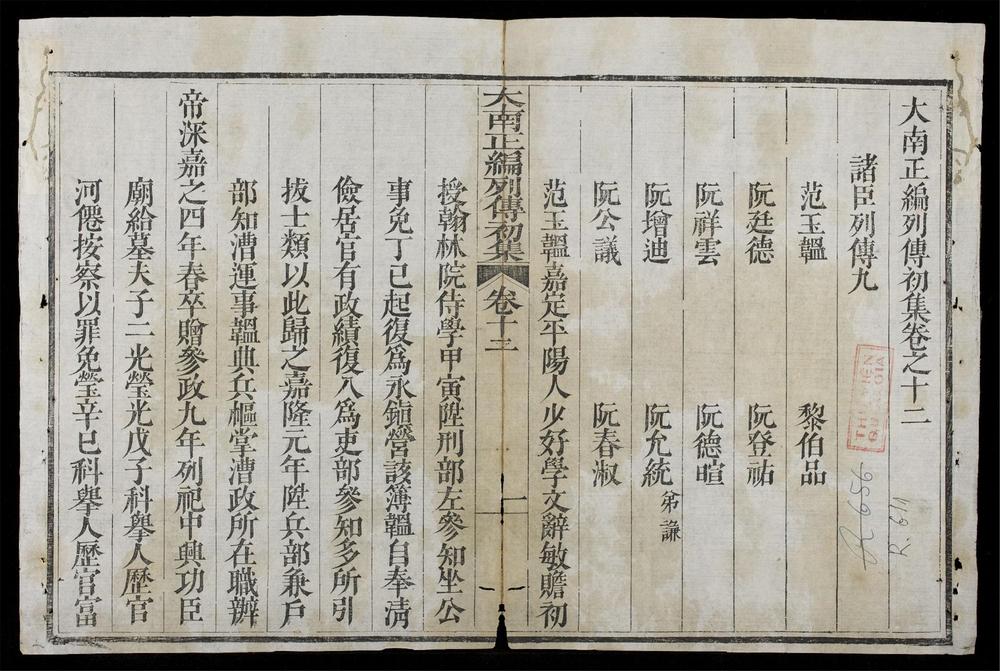 大南正編列傳初集卷之十二
諸臣列傳九
范玉韞 黎伯品
阮廷德 阮登祐
阮祥雲 阮德暄
阮增迪 阮允統弟謙
阮公議 阮春淑
范玉韞嘉定平陽人少好學文辭敏贍初
大南正編列傳初集 卷十二 一
授翰林院侍學甲寅陞刑部左參知坐公
事免丁巳起復爲永鎭營該簿韞自奉清
儉居官有政績復入爲吏部參知多所引
拔士類以此歸之嘉隆元年陞兵部兼戶
部知漕運事韞典兵樞掌漕政所在職辦
帝深嘉之四年春卒贈參政九年列祀中興功臣
廟給墓夫子二光瑩光戊子科舉人歷官
河僊按察以罪免瑩辛巳科舉人歷官富
THƯ VIỆN
QUỐC GIA
R.656
R.611